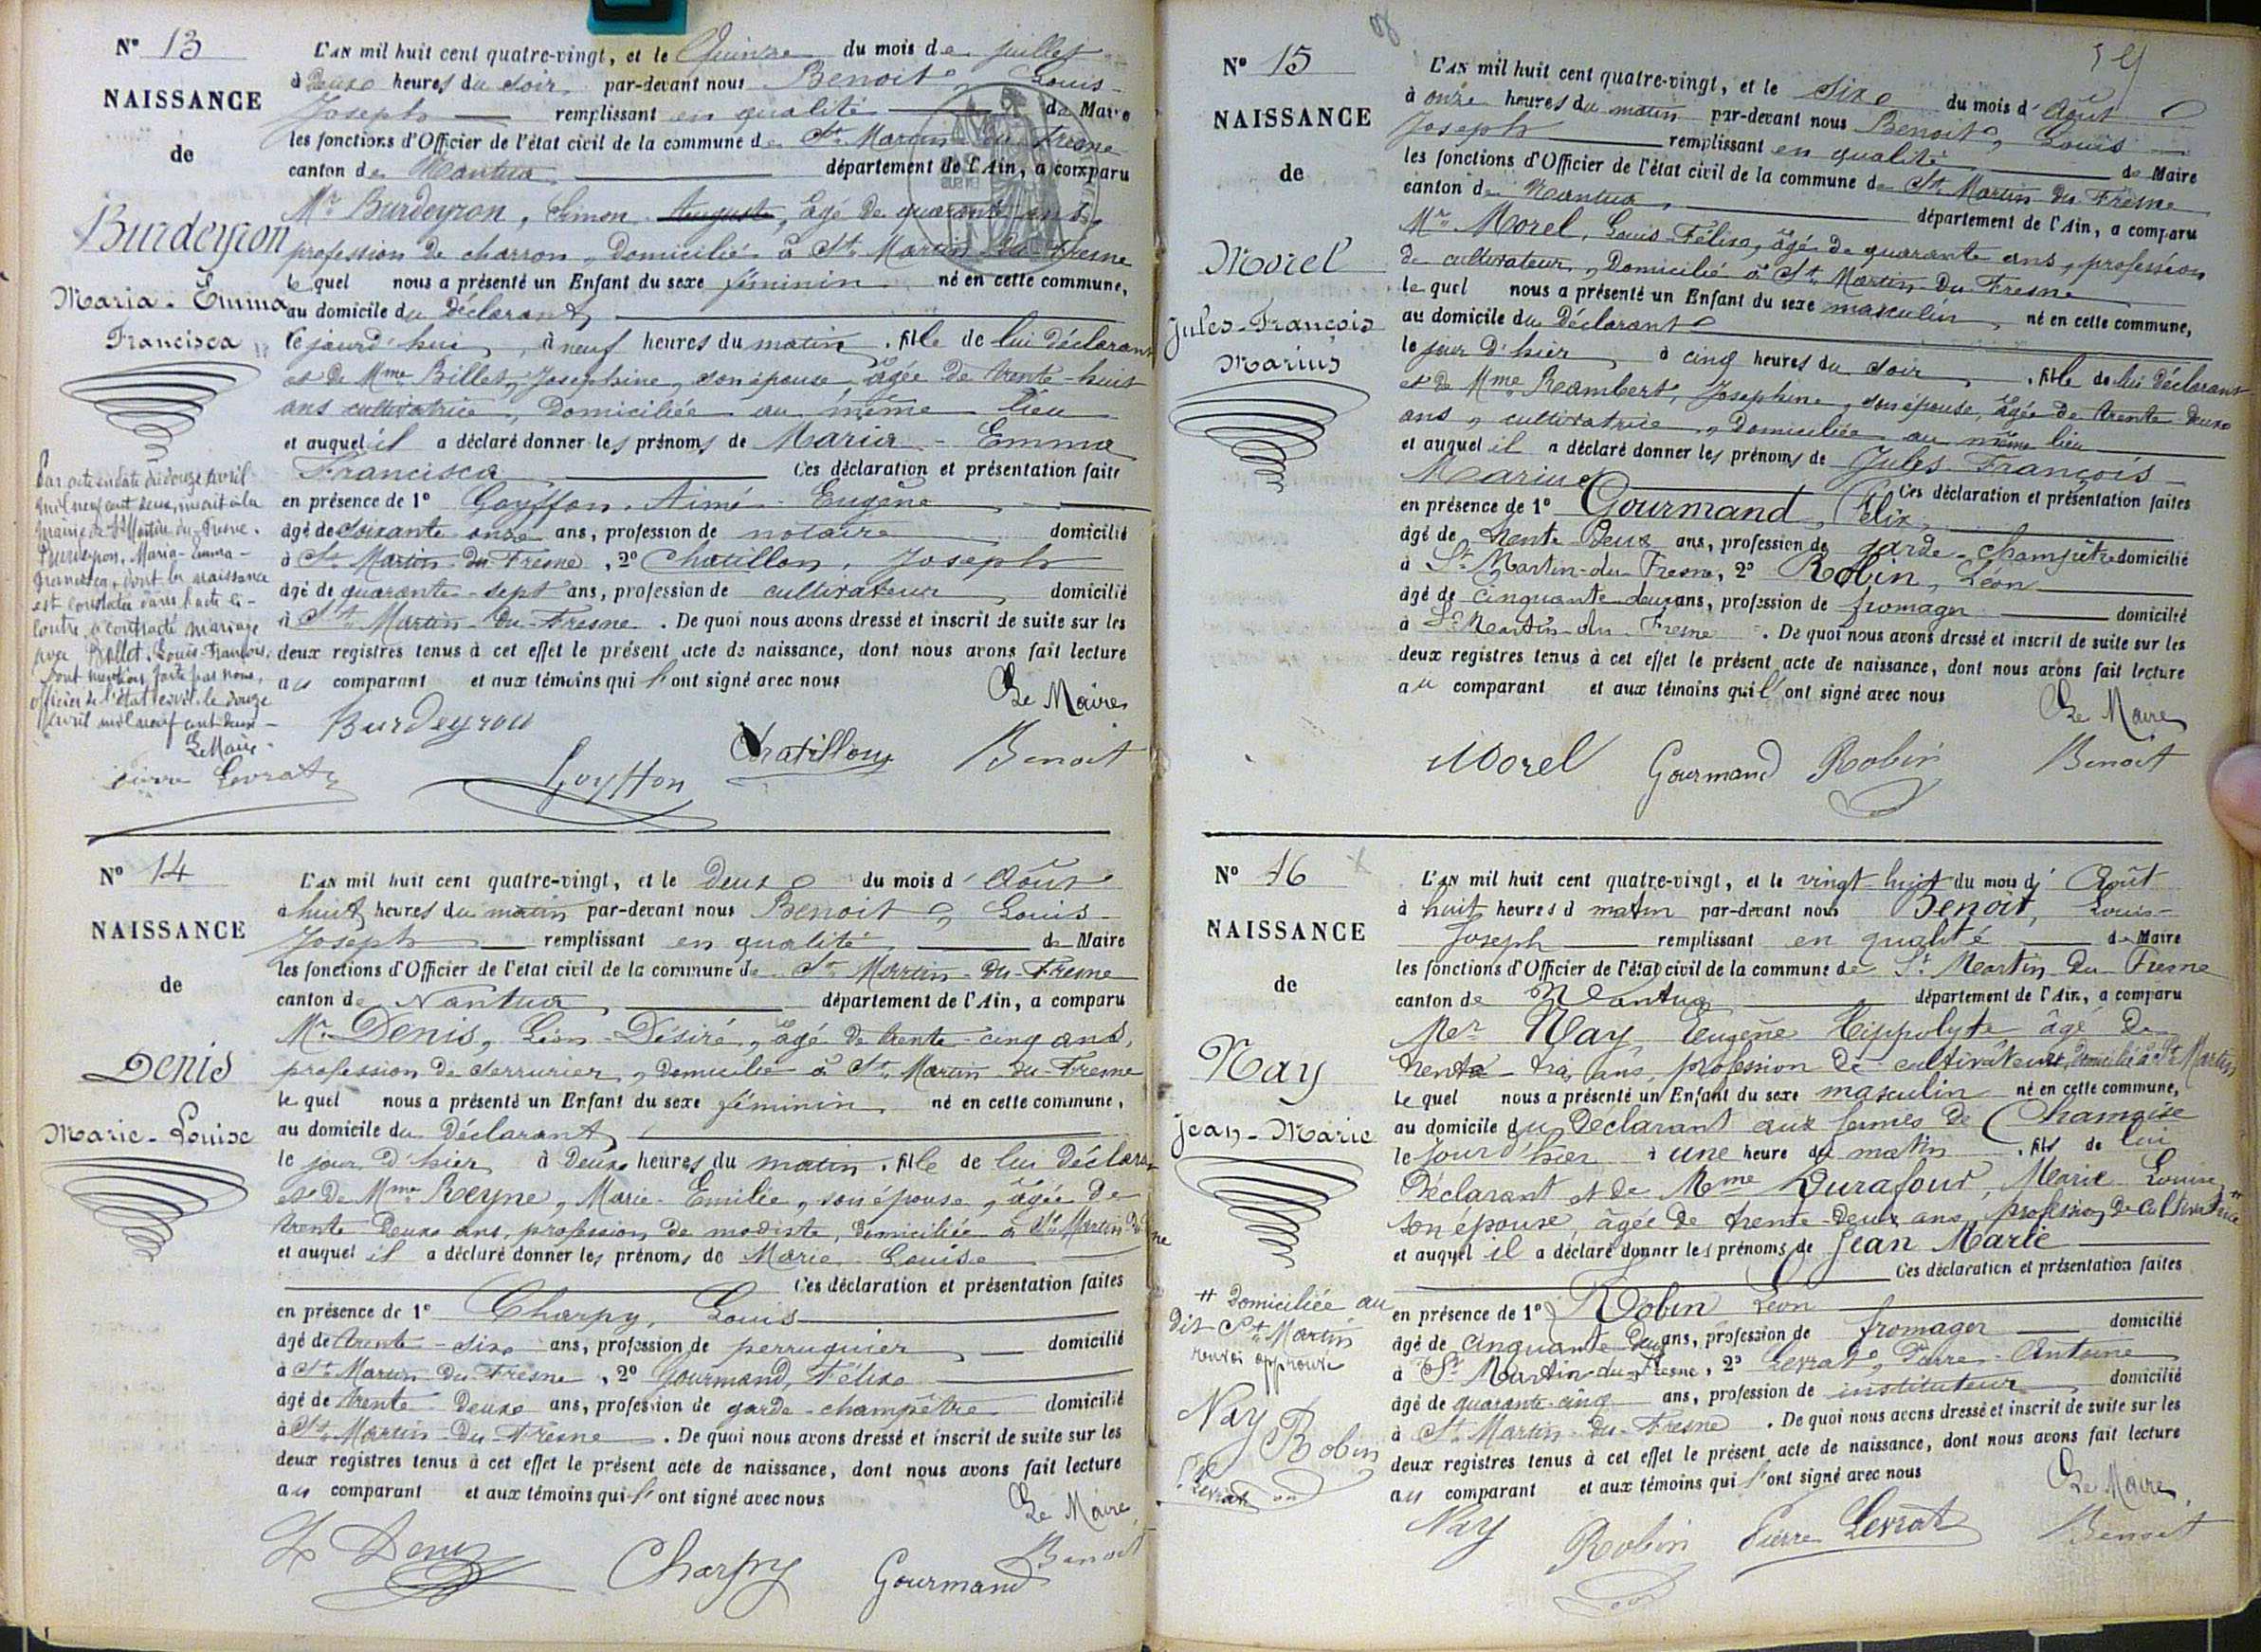 Nº 13
NAISSANCE
de
Burdeyron
Maria-Emma
Francisca
L'AN mil huit cent quatre-vingt, et le Quinze du mois de juillet
à deux heures du soir, par-devant nous Benoit, Louis-
Joseph remplissant en qualité de Maire
les fonctions d'Officier de l'état civil de la commune de St Martin du Fresne
canton de Nantua département de l'Ain, a comparu
Mr Burdeyron, Simon Auguste, âgé de quarante ans,
profession de charron, domicilié à St Martin-du-Fresne
lequel nous a présenté un Enfant du sexe féminin né en cette commune,
au domicile du déclarant,
le jourd'hui, à neuf heures du matin, fille de lui déclarant
et de Mme Billet, Joséphine, son épouse, âgée de trente-huit
ans cultivatrice, domiciliée au même lieu
et auquel il a déclaré donner les prénoms de Maria-Emma
Francisca Ces déclaration et présentation faite
en présence de 1º Goyffon, Aimé-Eugène
âgé de soixante onze ans, profession de notaire domicilié
à St Martin-du-Fresne, 2º Chatillon, Joseph
âgé de quarante-sept ans, profession de cultivateur, domicilié
à St Martin-du-Fresne. De quoi nous avons dressé et inscrit de suite sur les
deux registres tenus à cet effet le présent acte de naissance, dont nous avons fait lecture
au comparant et aux témoins qui l'ont signé avec nous
Le Maire
Burdeyron
Goyffon
Chatillon
Benoit
Par acte en date du douze avril
mil neuf cent deux, inscrit à la
mairie de St Martin-du-Fresne.
Burdeyron, Maria-Emma-
Francisca, dont la naissance
est constatée dans l'acte ci-
contre, a contracté mariage
avec Ballet, Louis-François.
dont mention faite par nous,
officier de l'état civil le douze
avril mil neuf cent deux-
Le Maire
Pierre Levrat
Nº 14
NAISSANCE
de
Denis
Marie-Louise
L'AN mil huit cent quatre-vingt, et le deux du mois d'Août
à huit heures du matin par-devant nous Benoit, Louis-
Joseph remplissant en qualité de Maire
les fonctions d'Officier de l'état civil de la commune de St Martin-du-Fresne
canton de Nantua, département de l'Ain, a comparu
Mr Denis, Léon-Désiré, âgé de trente-cinq ans,
profession de serrurier, domicilié à St Martin-du-Fresne
lequel nous a présenté un Enfant du sexe féminin né en cette commune,
au domicile du déclarant,
le jour d'hier à deux heures du matin, fille de lui déclarant
et de Mme Reyne, Marie-Emilie, son épouse, âgée de
trente deux ans, profession de modiste, domiciliée à St Martin-du-Fresne
et auquel il a déclaré donner les prénoms de Marie-Louise
Ces déclaration et présentation faites
en présence de 1º Charpy, Louis
âgé de trente-six ans, profession de perruquier, domicilié
à St Martin du Fresne, 2º Gourmand, Félix
âgé de trente-deux ans, profession de garde-champêtre domicilié
à St Martin-du-Fresne. De quoi nous avons dressé et inscrit de suite sur les
deux registres tenus à cet effet le présent acte de naissance, dont nous avons fait lecture
au comparant et aux témoins qui l'ont signé avec nous
Le Maire,
L Denis
Charpy
Gourmand
Benoit
Nº 15
NAISSANCE
de
Morel
Jules-François
Marius
L'AN mil huit cent quatre-vingt, et le six du mois d'Août
à onze heures du matin par-devant nous Benoit, Louis
Joseph remplissant en qualité de Maire
les fonctions d'Officier de l'état civil de la commune de St Martin du Fresne
canton de Nantua, département de l'Ain, a comparu
Mr Morel, Louis-Félix, âgé de quarante ans, profession
de cultivateur, domicilié à St Martin-du-Fresne
lequel nous a présenté un Enfant du sexe masculin, né en cette commune,
au domicile du déclarant
le jour d'hier, à cinq heures du soir, fils de lui déclarant
et de Mme Rambert, Joséphine, son épouse, âgée de trente-deux
ans, cultivatrice, domiciliée au même lieu
et auquel il a déclaré donner les prénoms de Jules-François-
Marius Ces déclaration et présentation faites
en présence de 1º Gourmand, Félix,
âgé de trente deux ans, profession de garde-champêtre domicilié
à St Martin-du-Fresne, 2º Robin, Léon
âgé de cinquante-deux ans, profession de fromager domicilié
à St Martin-du-Fresne. De quoi nous avons dressé et inscrit de suite sur les
deux registres tenus à cet effet le présent acte de naissance, dont nous avons fait lecture
au comparant et aux témoins qui l'ont signé avec nous
Le Maire
Morel
Gourmand
Robin
Benoit
Nº 16
NAISSANCE
de
Nay
Jean-Marie
L'AN mil huit cent quatre-vingt, et le vingt-huit du mois d'Août
à huit heures d matin par-devant nous Benoit, Louis-
Joseph remplissant en qualité de Maire
les fonctions d'Officier de l'état civil de la commune de St Martin-du-Fresne
canton de Nantua département de l'Ain, a comparu
Mr Nay Eugène Hippolyte âgé de
trente-trois ans, profession de cultivateur, domicilié à St Martin
lequel nous a présenté un Enfant du sexe masculin né en cette commune,
au domicile du déclarant aux fermes de Chamoise
le jour d'hier à une heure du matin, fils de lui
Déclarant et de Mme Durafour, Marie Louise
son épouse, âgée de trente-deux ans, profession de cultivatrice #
et auquel il a déclaré donner les prénoms de Jean Marie
Ces déclaration et présentation faites
en présence de 1º Robin Léon
âgé de cinquante deux ans, profession de fromager domicilié
à St Martin-du-Fresne, 2º Levrat, Pierre-Antoine
âgé de quarante-cinq ans, profession de instituteur, domicilié
à St Martin-du-Fresne. De quoi nous avons dressé et inscrit de suite sur les
deux registres tenus à cet effet le présent acte de naissance, dont nous avons fait lecture
au comparant et aux témoins qui l'ont signé avec nous
Le Maire,
Nay
Robin
Pierre Levrat
Benoit
# Domiciliée au
dit St Martin
renvoi approuvé
Nay
Robin
P. Levrat